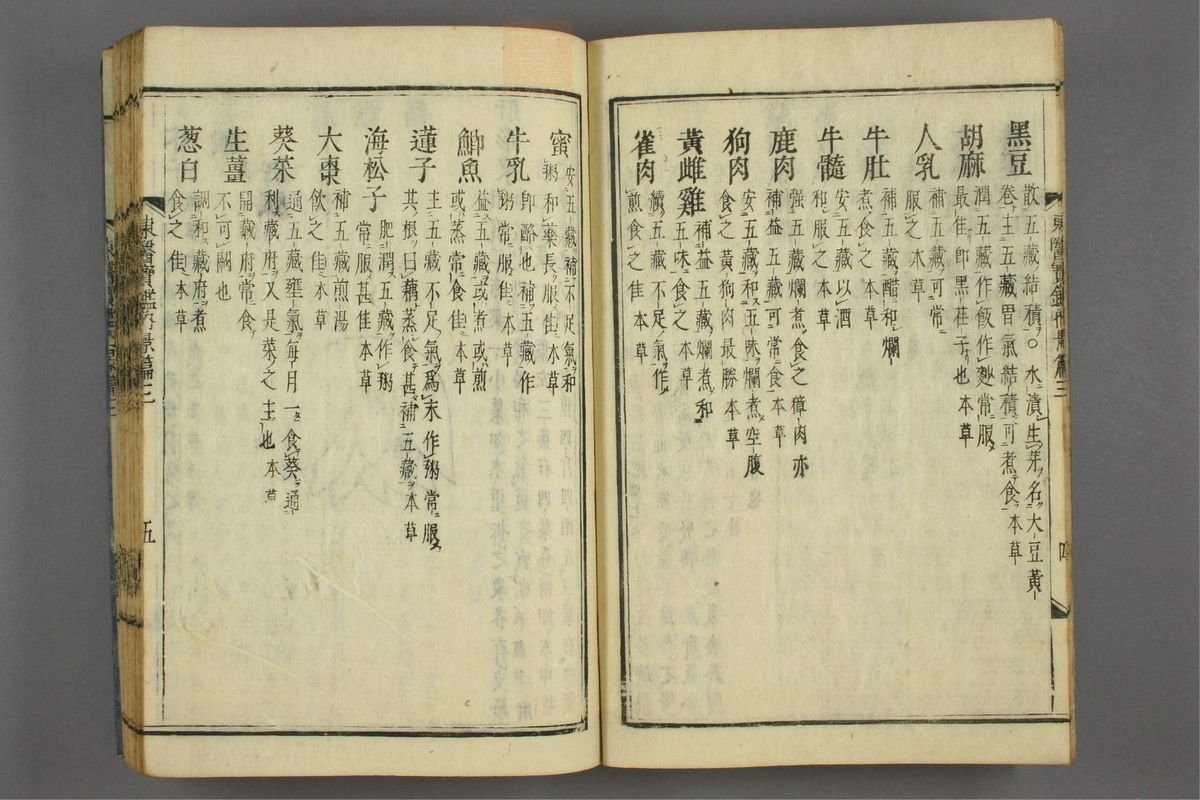 黑豆
散五藏結積○水漬生芽名大豆黃
卷主五藏胃氣結積可煮食本草
胡麻
潤五藏作飯作麨常服
最佳卽黑荏子也本草
人乳
補五藏可常
服之本草
牛肚
補五藏醋和爛
煮食本草
牛髓
安五藏以酒
和服本草
鹿肉
强五藏爛煮食之獐肉亦
補益五藏可常食本草
狗肉
安五藏和五味爛煮空腹
食之黃狗肉最勝本草
黃雌雞
補益五藏爛煮和
五味食之
雀肉
續五藏不足氣作
煎食之佳本草
蜜
安五藏補不足氣和
粥和藥長服佳本草
牛乳
卽酪也補五藏作
粥常服佳本草
鯽魚
益五藏或煮或煎
或蒸常食佳本草
蓮子
主五藏不足氣爲末作粥常服
其根曰藕蒸食甚補五藏本草
海松子
肥潤五藏作粥
常服甚佳本草
大棗
補五藏煎湯
飮之佳本草
葵菜
通五藏壅氣每月一食葵通
利藏府又是菜之主也本草
生薑
開藏府常食
不可闕也
葱白
調和藏府煮
食之佳本草
東醫寶鑑內景篇三
五